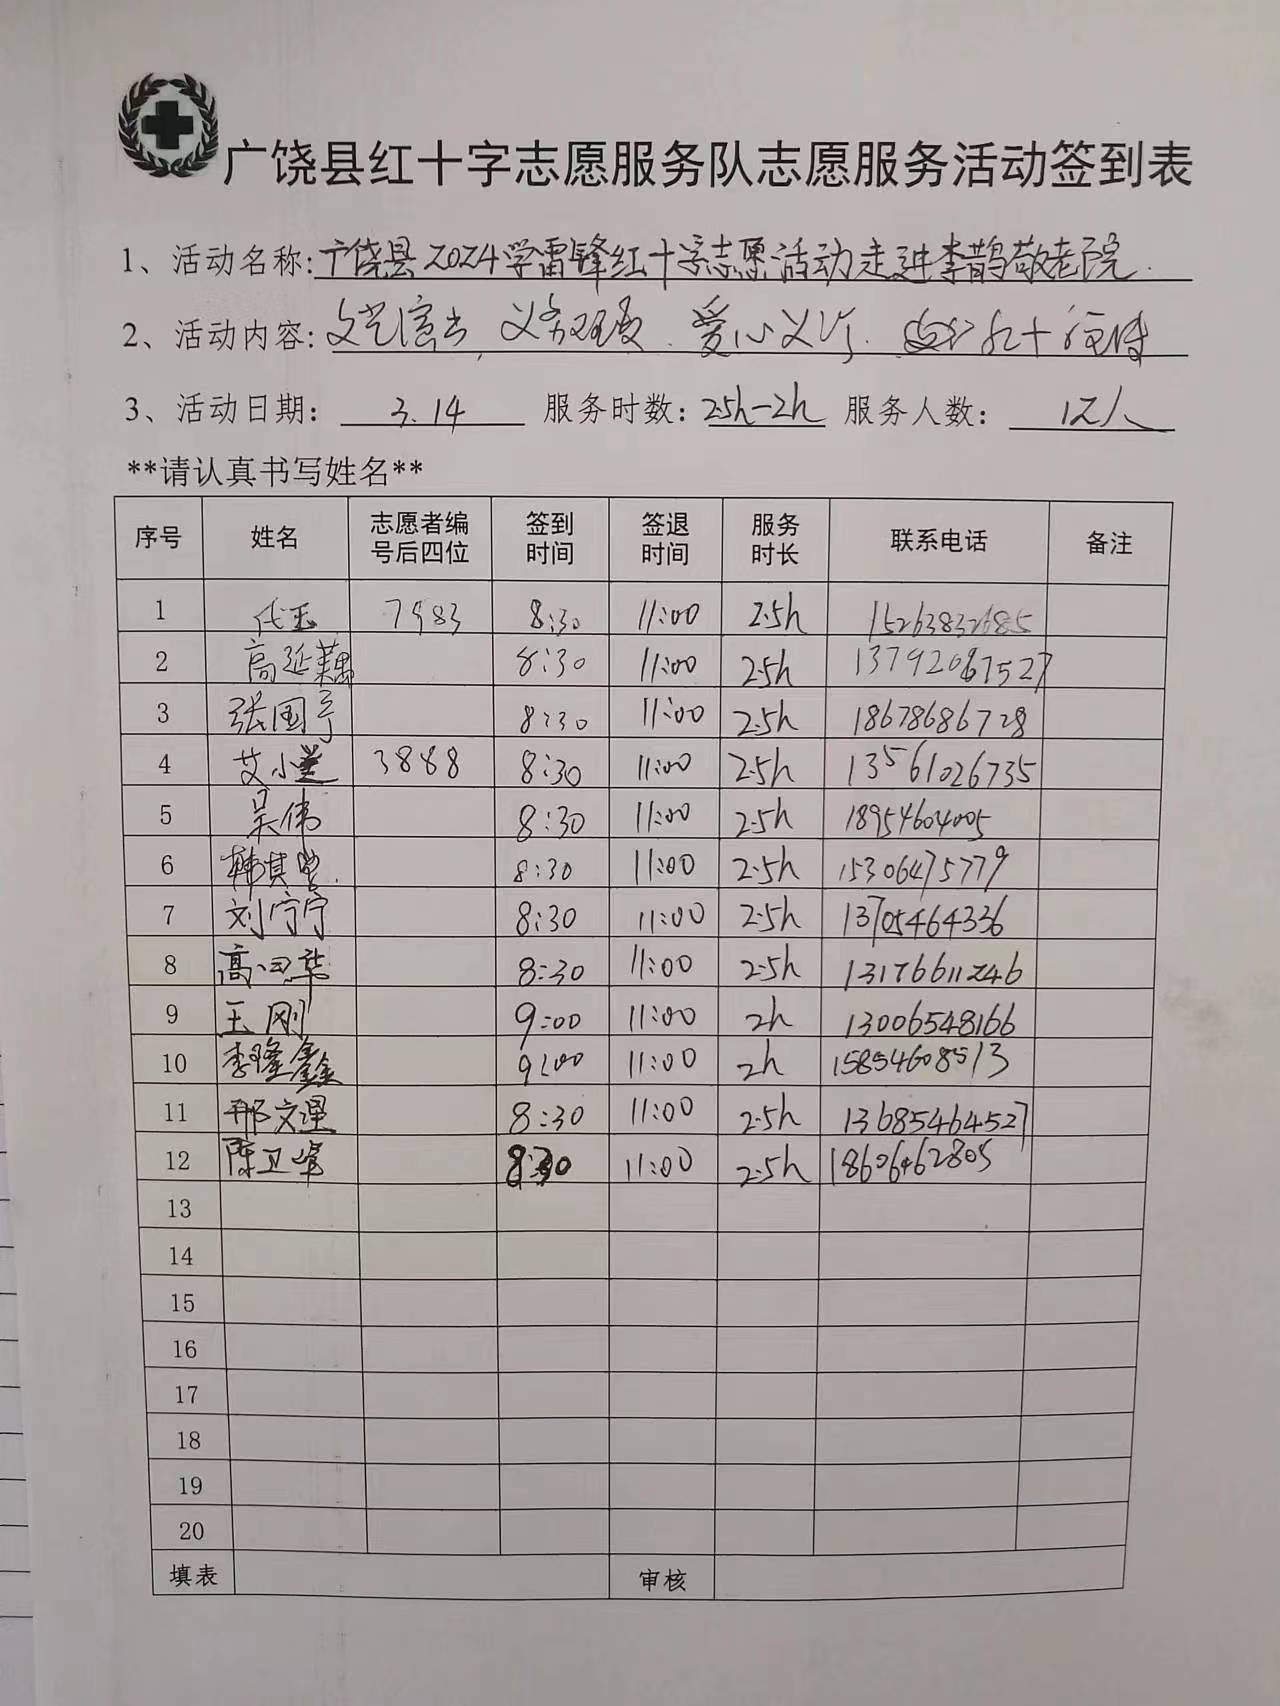 广饶县红十字志愿服务队志愿服务活动签到表
1、活动名称:广饶县2024学雷锋红十字志愿活动走进李鹊敬老院.
2、活动内容:文艺演出, 义务理发. 爱心义诊. 红十字宣传
3、活动日期: 3.14 服务时数: 2.5h-2h 服务人数: 12人
**请认真书写姓名**
序号 姓名 志愿者编号后四位 签到时间 签退时间 服务时长 联系电话 备注
1 代玉 7983 8:30 11:00 2.5h 15263832685
2 高延 8:30 11:00 2.5h 13792067527
3 张国亭 8:30 11:00 2.5h 18678686728
4 艾小兰 3888 8:30 11:00 2.5h 13561026735
5 吴伟 8:30 11:00 2.5h 18954604005
6 韩其 8:30 11:00 2.5h 15306475779
7 刘宁宁 8:30 11:00 2.5h 13705464336
8 高 华 8:30 11:00 2.5h 13176611246
9 王刚 9:00 11:00 2h 13006548166
10 李隆鑫 9:00 11:00 2h 15854608513
11 邢文理 8:30 11:00 2.5h 13685464527
12 陈卫峰 8:30 11:00 2.5h 18606462805
13
14
15
16
17
18
19
20
填表 审核